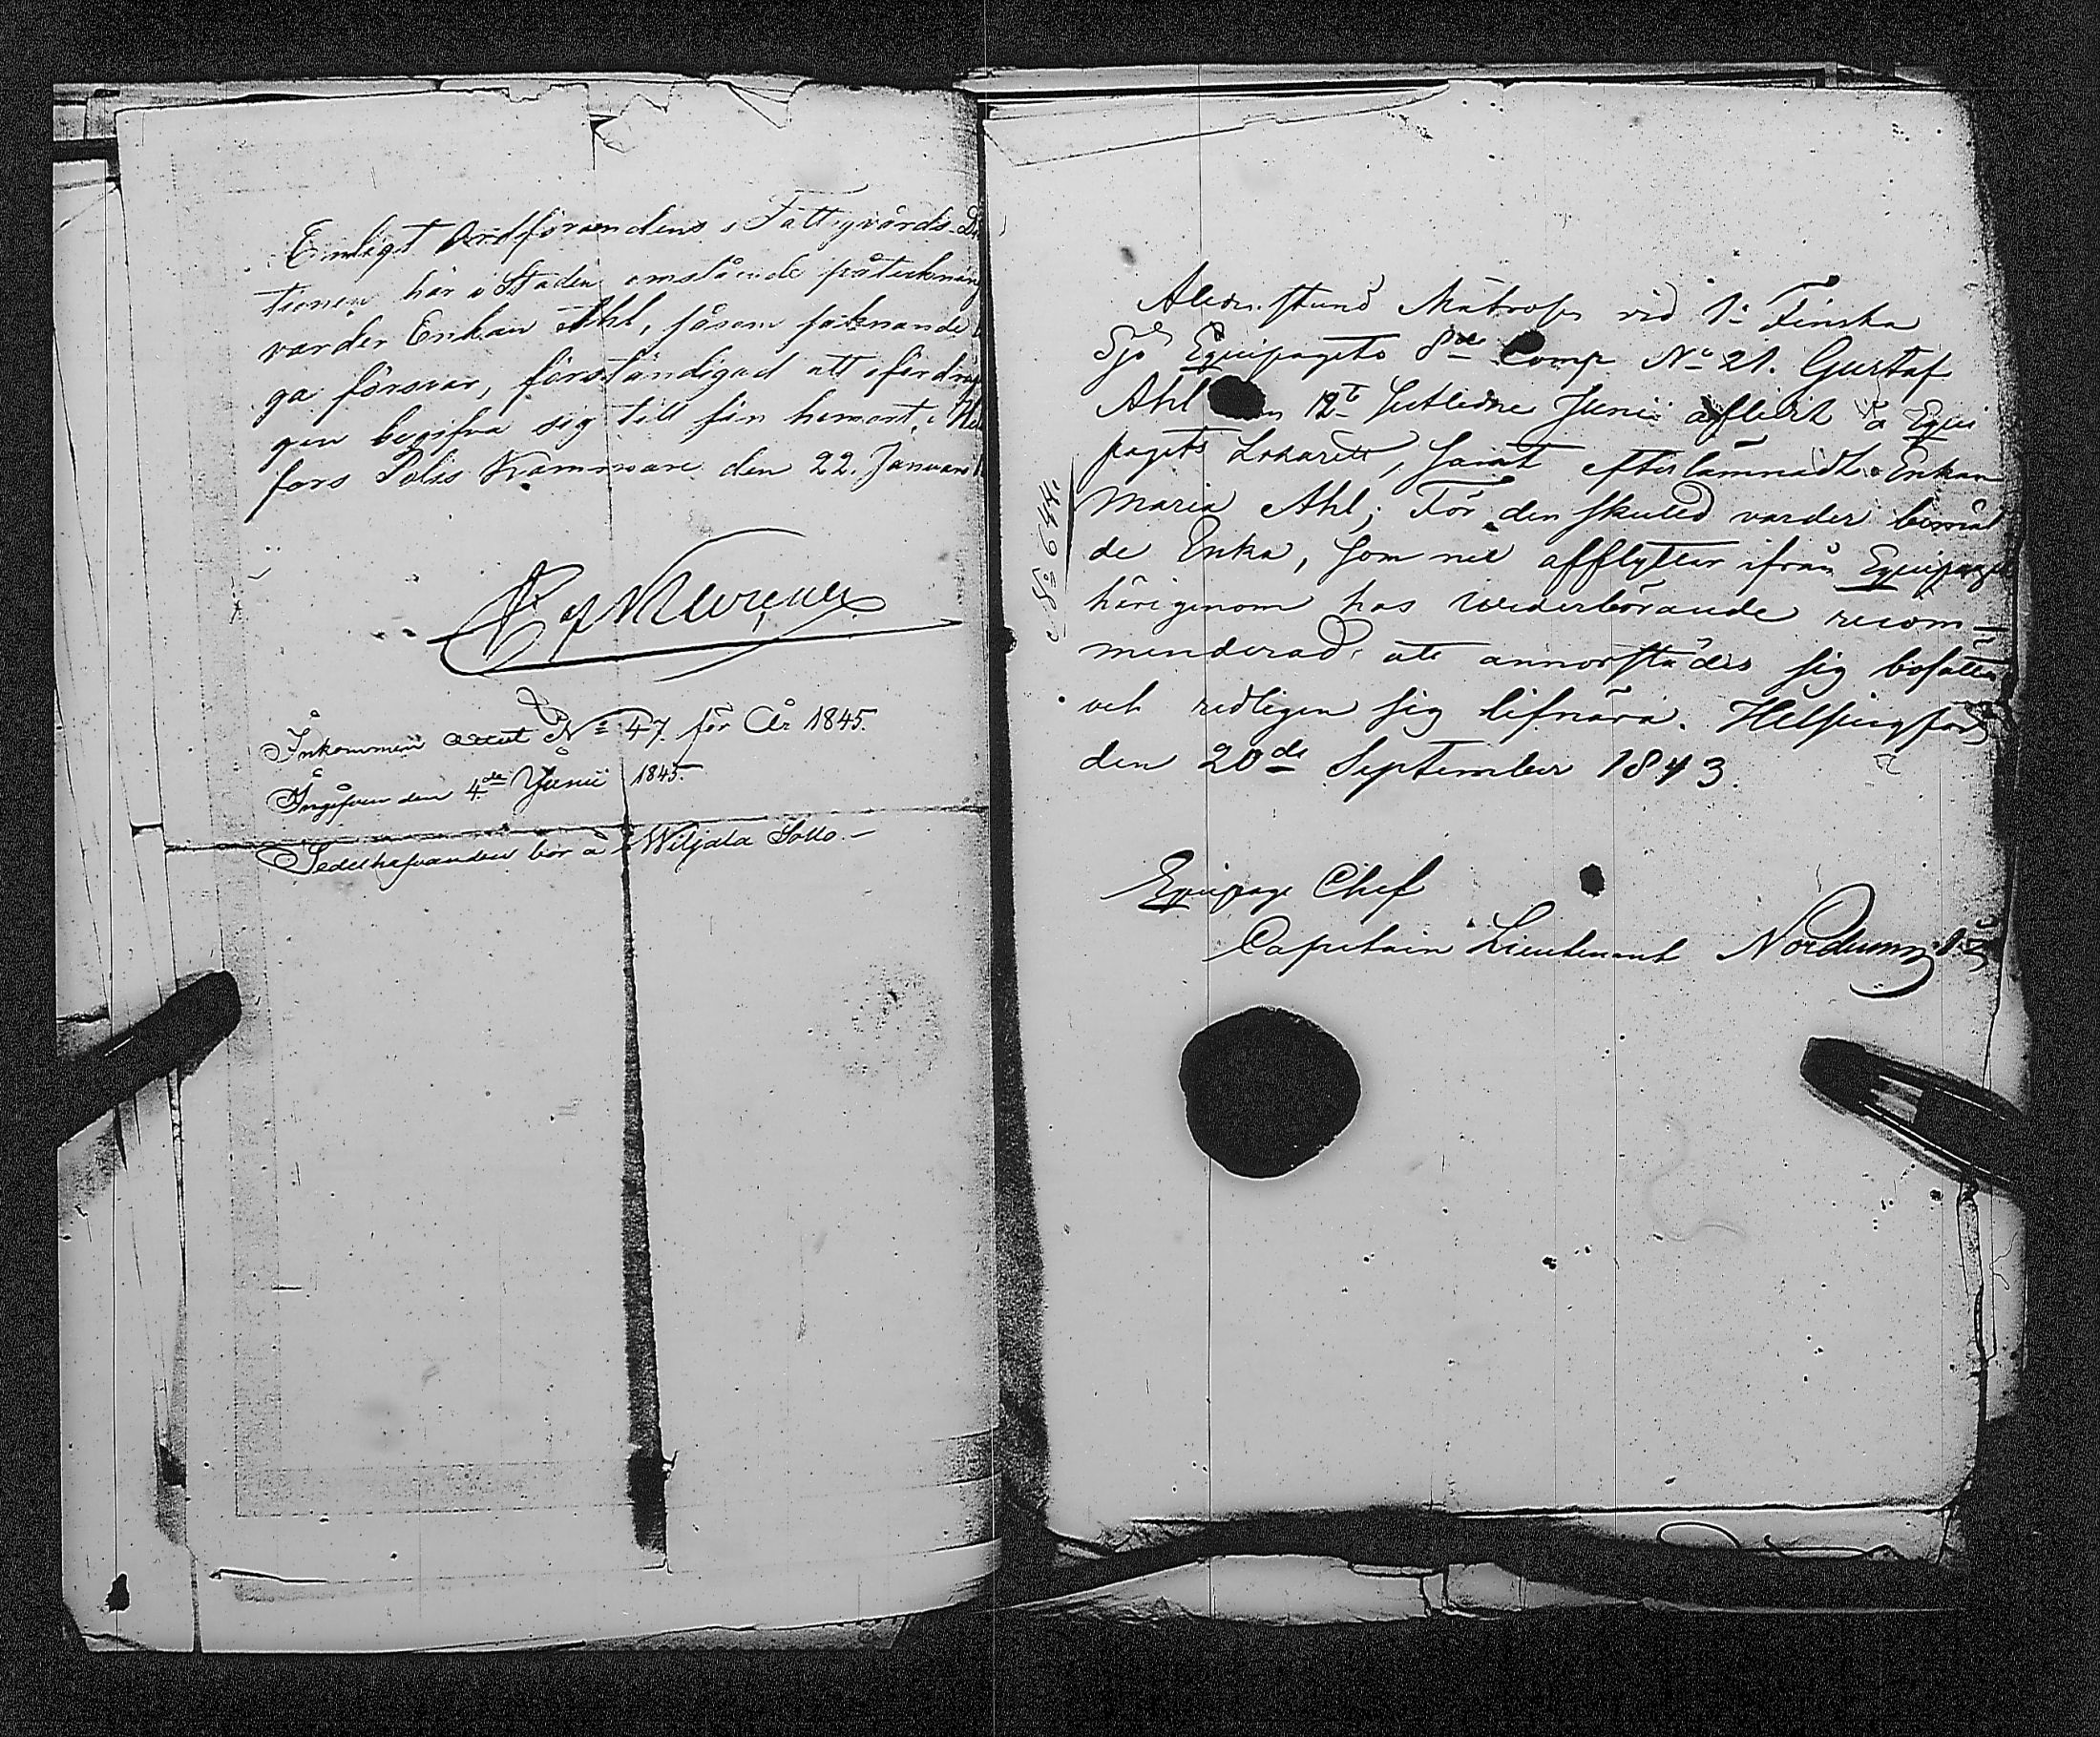 Enligt Ordförandens i Fattigvårds-Di
tionen här i Staden omstående påteckning
varder Enkan Ahl, såsom saknande
ga försvar, förständigad att ofördröj
gen begifva sig till sin hemort. Hel
fors Polis Kammare den 22. Januari
Inkommen attest No 47. för År 1845.
Ingifven den 4de Junii 1845.
Sedelhafvanden bor å Wiljala
No 644.
Alldenstund Matrosen vid 1a Finska
Sjö Equipagets 8de Comp No 21. Gustaf
Ahl 12te sistledne Junii aflidit å Equi
pagets Lazarett, samt efterlämnadt Enkan
Maria Ahl; För den skuld varder bemäl
de Enka, som nu afflyttar ifrån Equipaget
härigenom hos wederbörande recom-
menderad att annorstädes sig bosätta
och redligen sig lifnära. Helsingfors
den 20de September 1843.
Equipage Chef
Capitain Lieutenant